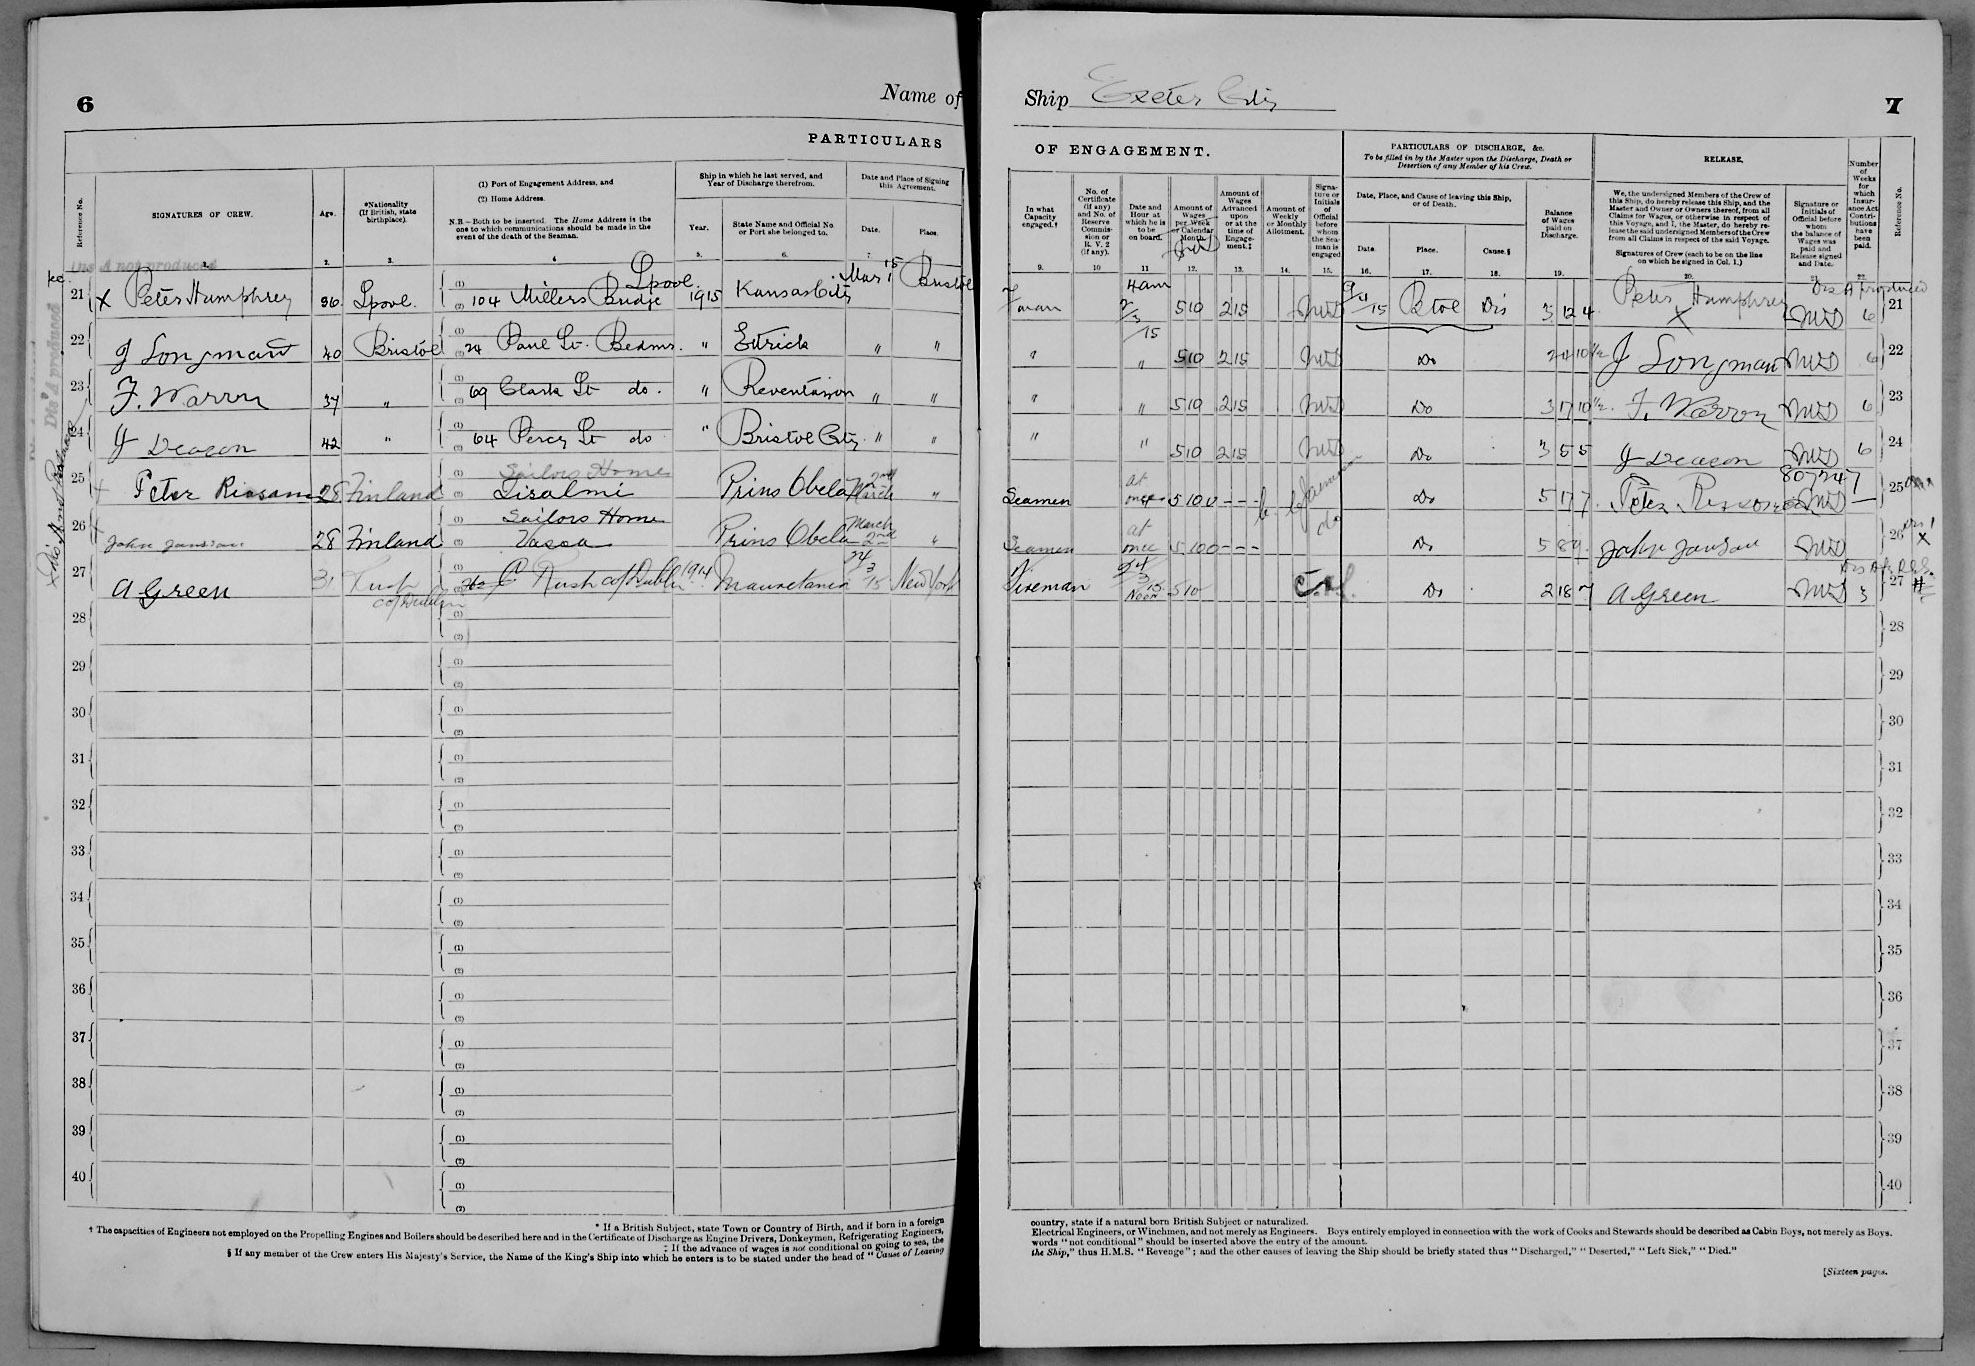 6
Name of
Ship Exeter City
7
PARTICULARS
OF ENGAGEMENT.
PARTICULARS OF DISCHARGE, &c.
To be filled in by the Master upon the Discharge, Death or
Desertion of any Member of his Crew.
RELEASE.
Reference No.
SIGNATURES OF CREW.
Age.
*Nationality
(If British, state
birthplace).
(1) Port of Engagement Address, and
(2) Home Address.
N.B.—Both to be inserted. The Home Address is the
one to which communications should be made in the
event of the death of the Seaman.
Ship in which he last served, and
Year of Discharge therefrom.
Year.
State Name and Official No.
or Port she belonged to.
Date and Place of Signing
this Agreement.
Date.
Place.
In what
Capacity
engaged.†
No. of
Certificate
(if any)
and No. of
Reserve
Commis-
sion or
R. V. 2
(if any).
Date and
Hour at
which he is
to be
on board.
Amount of
Wages
per Week
or Calendar
Month.
Amount of
Wages
Advanced
upon
or at the
time of
Engage-
ment.‡
Amount of
Weekly
or Monthly
Allotment.
Signa-
ture or
Initials
of
Official
before
whom
the Sea-
man is
engaged
Date, Place, and Cause of leaving this Ship,
or of Death.
Date.
Place.
Cause.§
Balance
of Wages
paid on
Discharge.
We, the undersigned Members of the Crew of
this Ship, do hereby release this Ship, and the
Master and Owner or Owners thereof, from all
Claims for Wages, or otherwise in respect of
this Voyage, and I, the Master, do hereby re-
lease the said undersigned Members of the Crew
from all Claims in respect of the said Voyage.
Signatures of Crew (each to be on the line
on which he signed in Col. 1.)
Signature or
Initials of
Official before
whom
the balance of
Wages was
paid and
Release signed
and Date.
Number
of
Weeks
for
which
Insur-
ance Act
Contri-
butions
have
been
paid.
Reference No.
2. 3. 4 5. 6. 7. 9. 10 11 12. 13. 14. 15. 16. 17. 18. 19. 20. 21. 22.
21 X Peter Humphrey 36 Lpool. (1) Lpool. (2) 104 Millers Bridge 1915 Kansas City Mar 1 15 Bristol
Fman 4am 2/3/15 5 10 2 15 9/4/15 Btol Dis 3 12 4 Peter Humphrey X Dis A produced 6 21
22 J Longman 40 Bristol 24 Paul St. Bedmr. " Ettrick " "
" " 5 10 2 15 Do J Longman 6 22
23 F. Warren 37 " 69 Clark St do. " Reventazon " "
" " 5 10 2 15 Do 3 17 10½ F. Warren 6 23
24 J Deacon 42 " 64 Percy St do " Bristol City " "
" " 5 10 2 15 Do 3 5 5 J Deacon 6 24
25 Peter 28 Finland Sailors Home Iisalmi Prins Obela 2nd March "
Seamen at once 5 10 0 - - - Do 5 17 7 Peter 25
26 John Janson 28 Finland Sailors Home Vasa Prins Obela March 2nd "
Seamen at once 5 10 0 - - - do Do 5 8 9 John Janson 26 X
27 A Green 31 Rush co/Dublin Rush co/Dublin 1914 Mauretania 24/3/15 New York
Fireman 24/3/15 Noon 5 10 Do 2 18 7 A Green 3 27 #
28 (1) (2) 28
29 (1) (2) 29
30 (1) (2) 30
31 (1) (2) 31
32 (1) (2) 32
33 (1) (2) 33
34 (1) (2) 34
35 (1) (2) 35
36 (1) (2) 36
37 (1) (2) 37
38 (1) (2) 38
39 (1) (2) 39
40 (1) (2) 40
* If a British Subject, state Town or Country of Birth, and if born in a foreign
† The capacities of Engineers not employed on the Propelling Engines and Boilers should be described here and in the Certificate of Discharge as Engine Drivers, Donkeymen, Refrigerating Engineers,
‡ If the advance of wages is not conditional on going to sea, the
§ If any member of the Crew enters His Majesty's Service, the Name of the King's Ship into which he enters is to be stated under the head of "Cause of Leaving
country, state if a natural born British Subject or naturalized.
Electrical Engineers, or Winchmen, and not merely as Engineers. Boys entirely employed in connection with the work of Cooks and Stewards should be described as Cabin Boys, not merely as Boys.
words "not conditional" should be inserted above the entry of the amount.
the Ship," thus H.M.S. "Revenge"; and the other causes of leaving the Ship should be briefly stated thus "Discharged," "Deserted," "Left Sick," "Died."
[Sixteen pages.